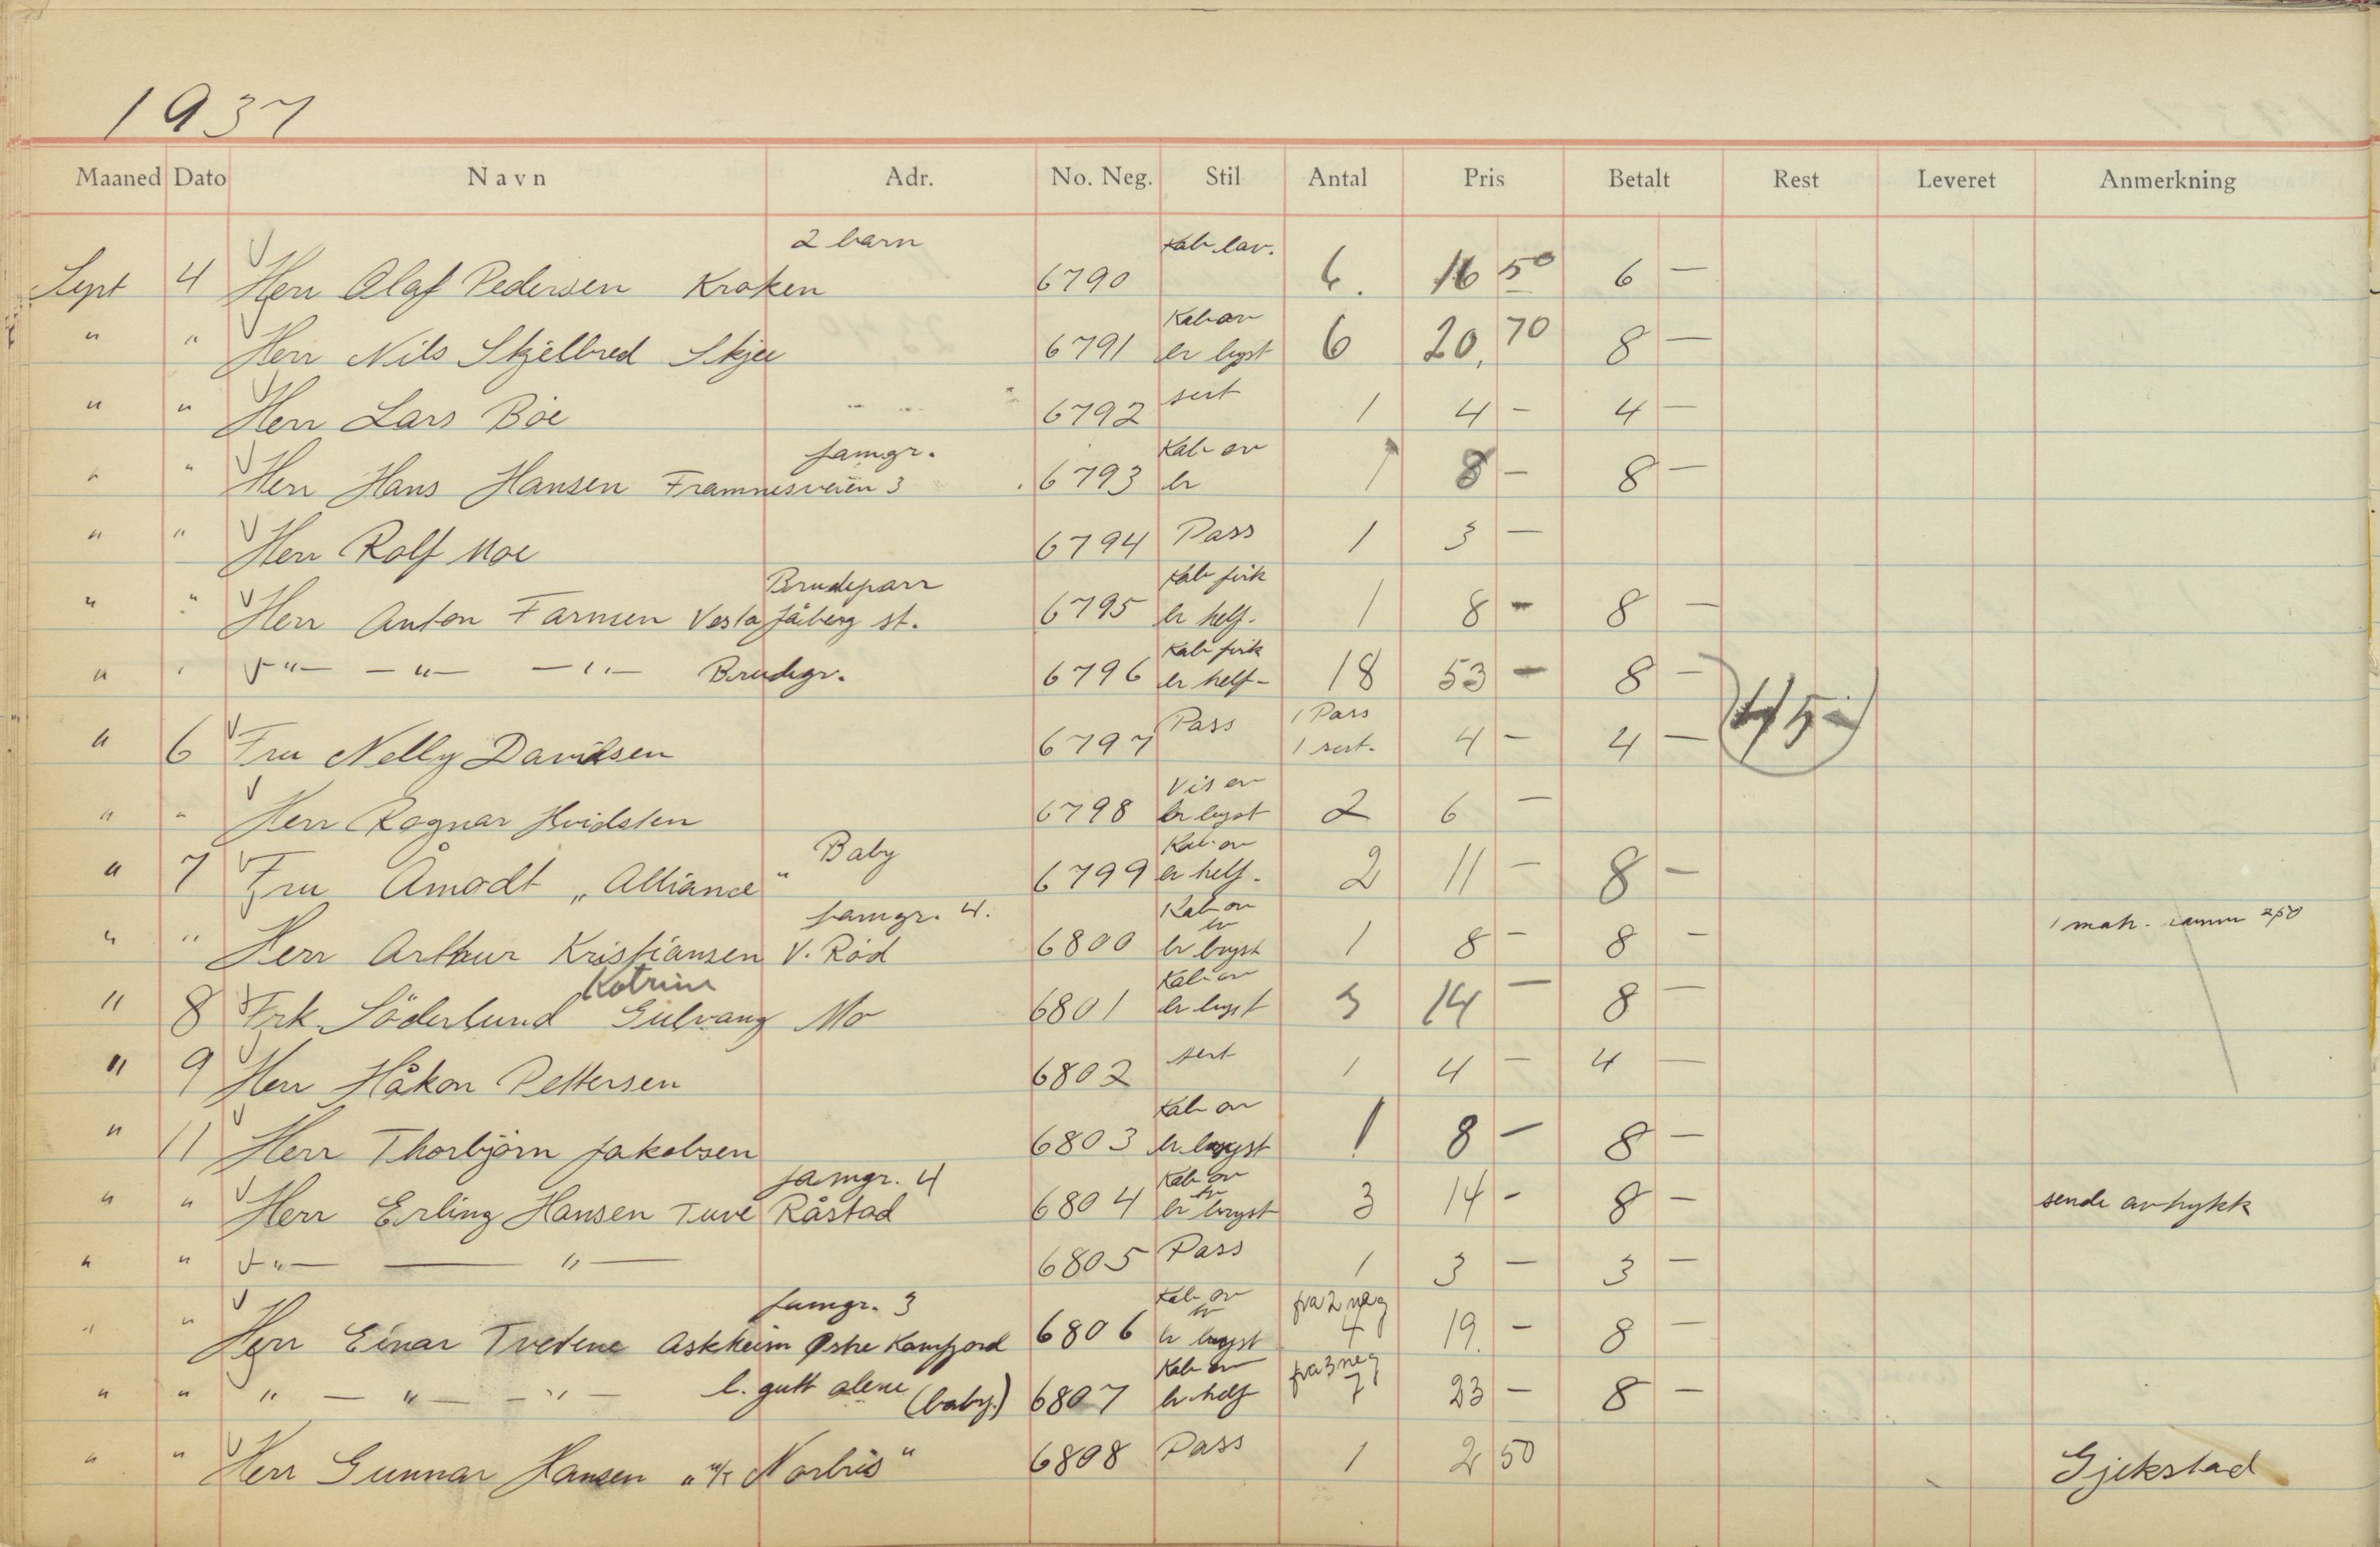 1937
Maaned Dato Navn Adr. No. Neg. Stil Antal Pris Betalt Rest Leveret Anmerkning
2 barn Kab lav.
Sept 4 Herr Olaf Pedersen Kroken 6790 6. 16 50 6 —
Kab av
" " Herr Nils Skjelbred Skjee 6791 er bryst 6 20, 70 8 —
sert
" " Herr Lars Böe 6792 1 4 - 4 —
famgr. Kab av
" " Herr Hans Hansen Framnesveien 3 6793 er 1 8 - 8 —
" " Herr Rolf Moe 6794 Pass 1 3 —
Brudeparr Kab firk
" " Herr Anton Farmen Vesta Jåberg st. 6795 er helf. 1 8 - 8 —
Kab firk
" " — " — — " — — " — Brudegr. 6796 er helf - 18 53 - 8 -
Pass 1 Pass
" 6 Fru Nelly Davidsen 6797 1 sert. 4 - 4 — 45 -
Vis av
" " Herr Ragnar Hvidsten 6798 er bryst 2 6 —
Baby Kab. av
" 7 Fru Åmodt „Alliance" 6799 er helf. 2 11 - 8 -
famgr. 4. Kab av 1 mah. ramm 2,50
" " Herr Arthur Kristiansen V. Röd 6800 er bryst 1 8 - 8 -
Katrine Kab av
" 8 Frk. Söderlund Gulvang Mo 6801 er bryst 3 14 — 8 —
sert
" 9 Herr Håkon Pettersen 6802 1 4 — 4 —
Kab av
" 11 Herr Thorbjörn Jakobsen 6803 er bryst 1 8 - 8 —
famgr. 4 Kab av
" " Herr Erling Hansen Tuve Råstad 6804 er bryst 3 14 - 8 - sende avtrykk
" " — " — — " — 6805 Pass 1 3 — 3 —
famgr. 3 Kab av fra 2 neg
" " Herr Einar Tvetene Askheim Østre Kamfjord 6806 er bryst 4 19. - 8 —
Kab av fra 3 neg
" " " — " — - " — l. gutt alene (baby.) 6807 er helf 7 23 - 8 -
" " Herr Gunnar Hansen „M/T Norbris" 6808 Pass 1 2 50 Gjekstad